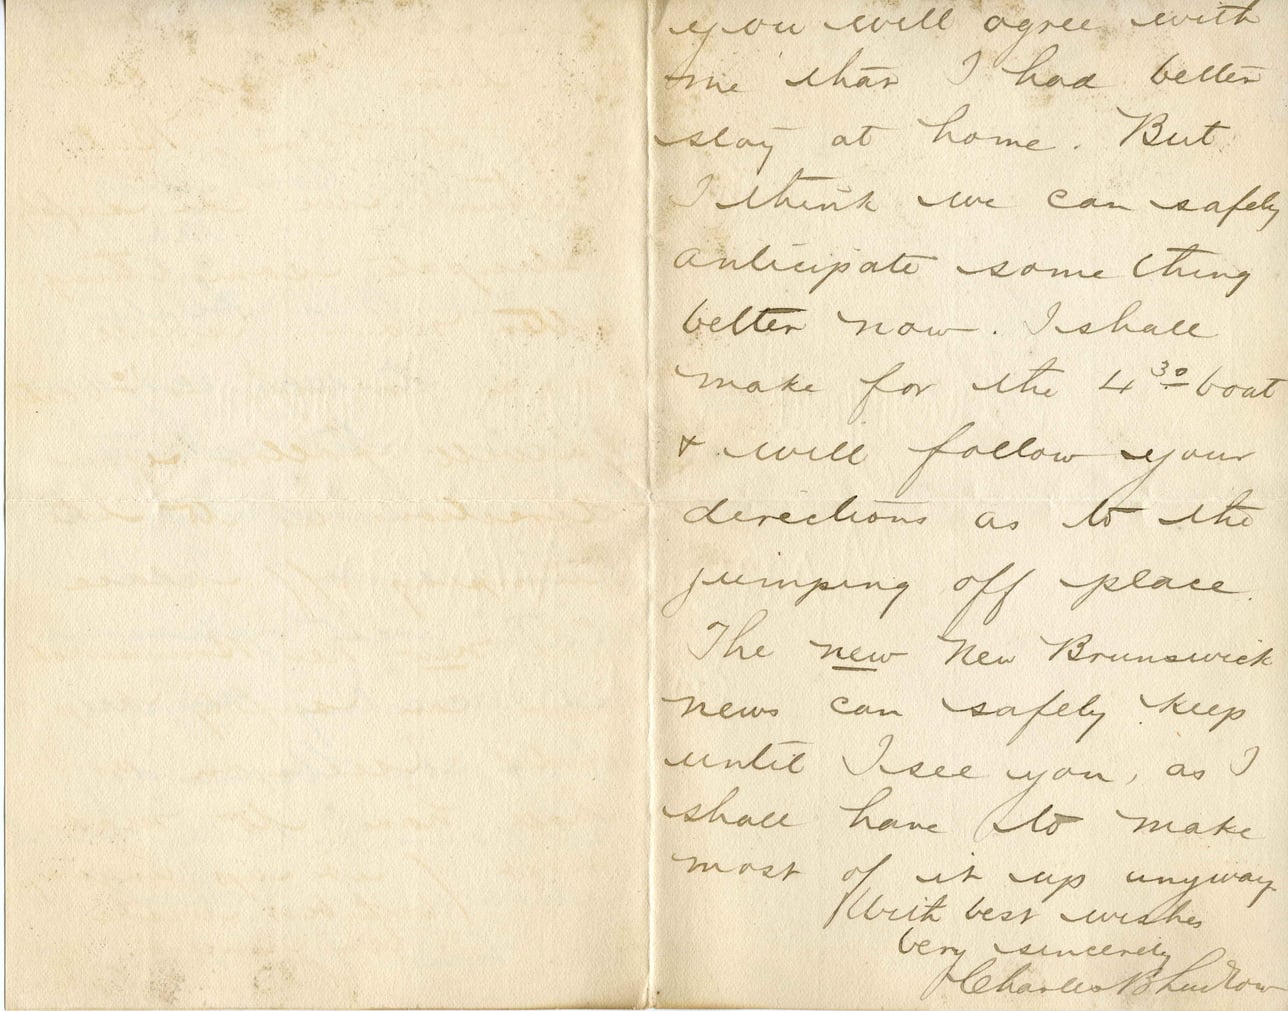 you will agree with
me that I had better
stay at home. But
I think we can safely
anticipate some thing
better now. I shall
make for the 4 30 boat
& will follow your
directions as to the
jumping off place.
The new New Brunswick
news can safely keep
until I see you, as I
shall have to make
most of it up anyway
With best wishes
Very sincerely
Charles B Ludlow